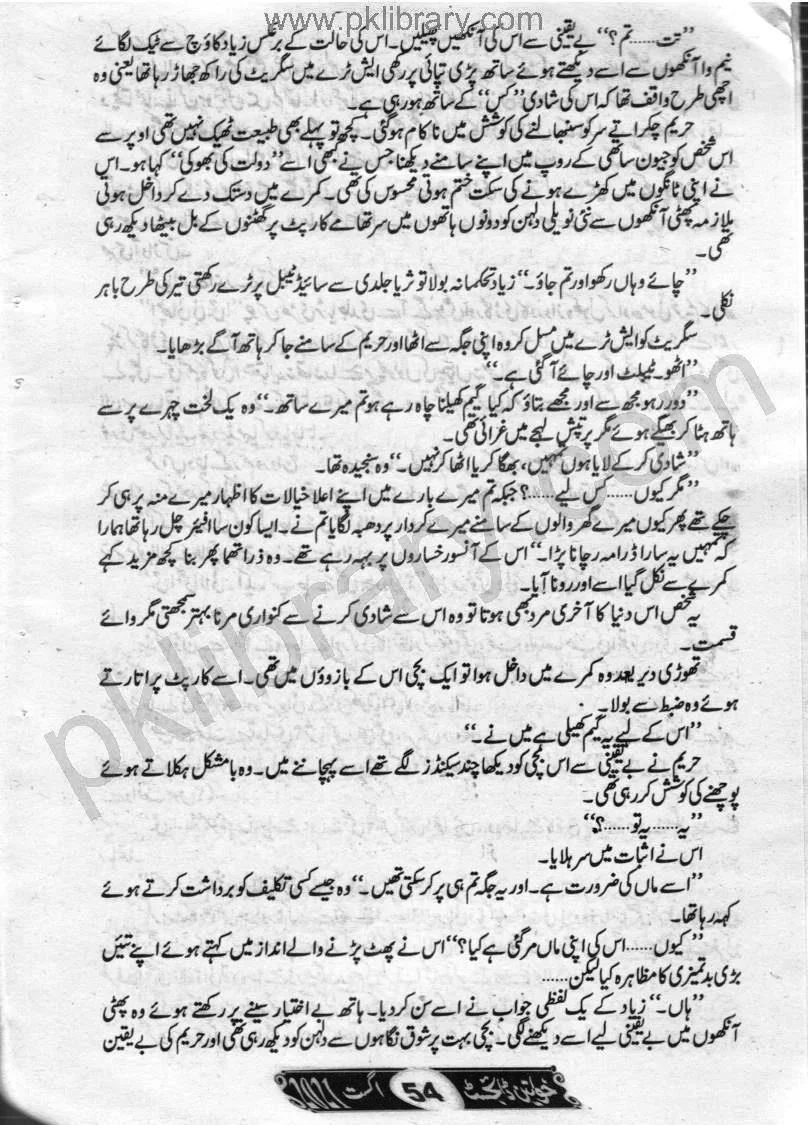 www.pklibrary.com
”تت......تم؟“ بے یقینی سے اس کی آنکھیں پھیلیں۔ اس کی حالت کے برعکس زیاد کاؤچ سے ٹیک لگائے
نیم وا آنکھوں سے اسے دیکھتے ہوئے ساتھ پڑی تپائی پر رکھی ایش ٹرے میں سگریٹ کی راکھ جھاڑ رہا تھا یعنی وہ
اچھی طرح واقف تھا کہ اس کی شادی ”کس“ کے ساتھ ہو رہی ہے۔
حریم چکراتے سر کو سنبھالنے کی کوشش میں ناکام ہو گئی۔ کچھ تو پہلے بھی طبیعت ٹھیک نہیں تھی اوپر سے
اس شخص کو جیون ساتھی کے روپ میں اپنے سامنے دیکھنا جس نے کبھی اسے ”دولت کی بھوکی“ کہا ہو۔ اس
نے اپنی ٹانگوں میں کھڑے ہونے کی سکت ختم ہوتی محسوس کی تھی۔ کمرے میں دستک دے کر داخل ہوتی
ملازمہ پھٹی آنکھوں سے نئی نویلی دلہن کو دونوں ہاتھوں میں سر تھامے کارپٹ پر گھٹنوں کے بل بیٹھا دیکھ رہی
تھی۔
”چائے وہاں رکھو اور تم جاؤ۔“ زیاد تحکمانہ بولا تو ثریا جلدی سے سائیڈ ٹیبل پر ٹرے رکھتی تیر کی طرح باہر
نکلی۔
سگریٹ کو ایش ٹرے میں مسل کر وہ اپنی جگہ سے اٹھا اور حریم کے سامنے جا کر ہاتھ آگے بڑھایا۔
”اٹھو۔ ٹیبلٹ اور چائے آ گئی ہے۔“
”دور رہو مجھ سے اور مجھے بتاؤ کہ کیا گیم کھیلنا چاہ رہے ہو تم میرے ساتھ۔“ وہ یک لخت چہرے پر سے
ہاتھ ہٹا کر بھیگے ہوئے مگر پر تپش لہجے میں غرائی تھی۔
”شادی کر کے لایا ہوں تمہیں، بھگا کر یا اٹھا کر نہیں۔“ وہ سنجیدہ تھا۔
”مگر کیوں...... کس لیے......؟ جبکہ تم میرے بارے میں اپنے اعلا خیالات کا اظہار میرے منہ پر ہی کر
چکے تھے پھر کیوں میرے گھر والوں کے سامنے میرے کردار پر دھبہ لگایا تم نے۔ ایسا کون سا افیئر چل رہا تھا ہمارا
کہ تمہیں یہ سارا ڈرامہ رچانا پڑا۔“ اس کے آنسو رخساروں پر بہہ رہے تھے۔ وہ ذرا تھما پھر بنا کچھ مزید کہے
کمرے سے نکل گیا اسے اور رونا آیا۔
یہ شخص اس دنیا کا آخری مرد بھی ہوتا تو وہ اس سے شادی کرنے سے کنواری مرنا بہتر سمجھتی مگر وائے
قسمت۔
تھوڑی دیر بعد وہ کمرے میں داخل ہوا تو ایک بچی اس کے بازوؤں میں تھی۔ اسے کارپٹ پر اتارتے
ہوئے وہ ضبط سے بولا۔
”اس کے لیے یہ گیم کھیلی ہے میں نے۔“
حریم نے بے یقینی سے اس بچی کو دیکھا چند سیکنڈز لگے تھے اسے پہچاننے میں۔ وہ بامشکل ہکلاتے ہوئے
پوچھنے کی کوشش کر رہی تھی۔
”یہ...... یہ تو......؟“
اس نے اثبات میں سر ہلایا۔
”اسے ماں کی ضرورت ہے۔ اور یہ جگہ تم ہی پر کر سکتی تھیں۔“ وہ جیسے کسی تکلیف کو برداشت کرتے ہوئے
کہہ رہا تھا۔
”کیوں...... اس کی اپنی ماں مر گئی ہے کیا؟“ اس نے پھٹ پڑنے والے انداز میں کہتے ہوئے اپنے تئیں
بڑی بدتمیزی کا مظاہرہ کیا لیکن......
”ہاں۔“ زیاد کے یک لفظی جواب نے اسے سن کر دیا۔ ہاتھ بے اختیار سینے پر رکھتے ہوئے وہ پھٹی
آنکھوں میں بے یقینی لیے اسے دیکھنے لگی۔ بچی بہت پر شوق نگاہوں سے دلہن کو دیکھ رہی تھی اور حریم کی بے یقین
خواتین ڈائجسٹ 54 اگست 2021
pklibrary.com